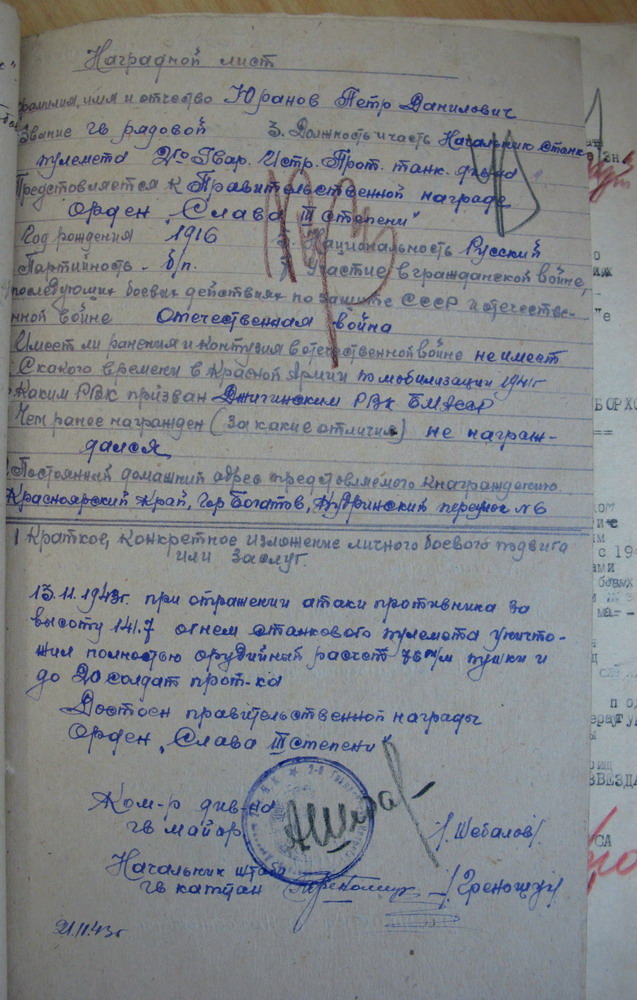 Наградной лист
Фамилия, имя и отчество Юранов Петр Данилович
Звание гв рядовой 3. Должность и часть Начальник станк.
пулемета 2го Гвар. Истр. Прот. танк. див-на
Представляется к Правительственной награде
Орден „Слава III степени"
Год рождения 1916 Национальность Русский
Партийность - б/п. Участие в гражданской войне,
последующих боевых действиях по защите СССР и отечестве-
нной войне Отечественная война
Имеет ли ранения и контузия в отечественной войне не имеет
С какого времени в Красной Армии по мобилизации 1941г
Каким РВК призван Джигинским РВК БМАССР
Чем ранее награжден (за какие отличия) не награж-
дался
Постоянный домашний адрес представляемого к награждению
Красноярский Край, гор Боготов, Кудринский переулок №6
1 Краткое, конкретное изложение личного боевого подвига
или заслуг.
13.11.1943г. при отражении атаки противника за
высоту 141.7 огнем станкового пулемета уничто-
жил полностью орудийный расчет 76 м/м пушки и
до 20 солдат прот-ка
Достоен правительственной награды
Орден „Слава III степени"
Ком-р див-на
гв майор /Шебалов/
Начальник штаба
гв капитан
21.11.43г